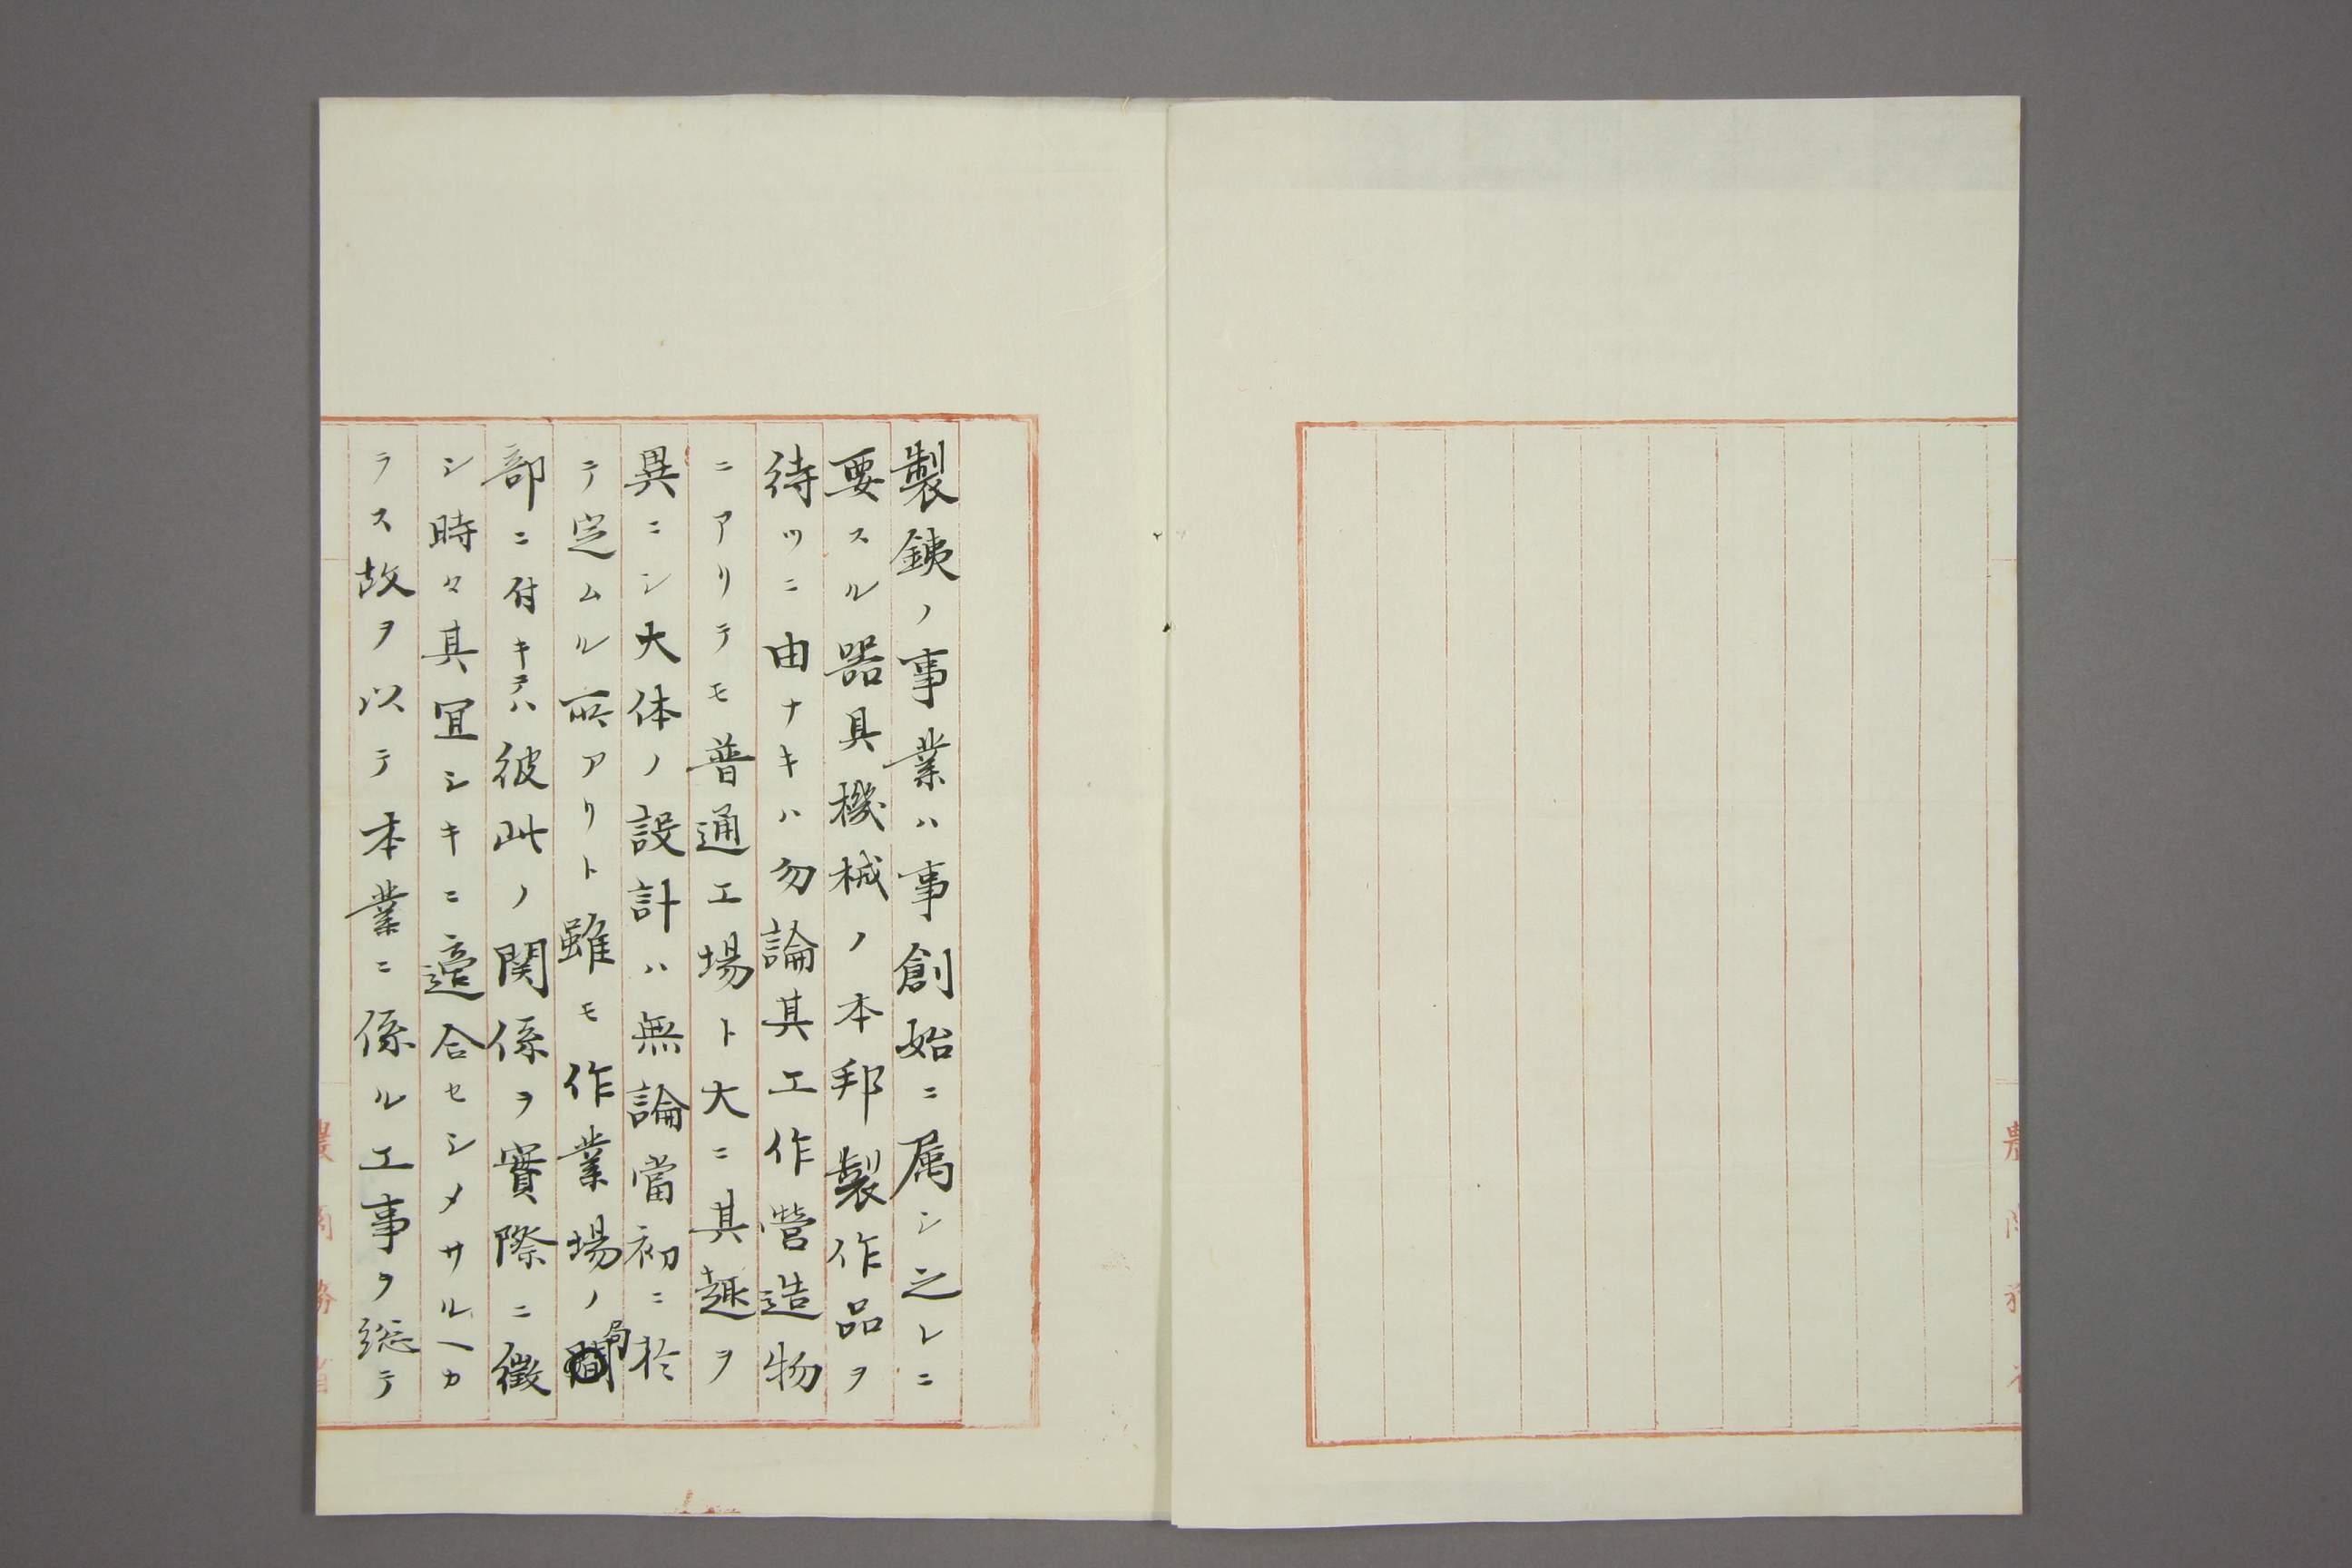 製銕ノ事業ハ事創始ニ属シ之レニ
要スル器具機械ノ本邦製作品ヲ
待ツニ由ナキハ勿論其工作營造物
ニアリテモ普通工場ト大ニ其趣ヲ
異ニシ大体ノ設計ハ無論當初ニ於
テ定ムル所アリト雖モ作業場ノ局
部ニ付キテハ彼此ノ関係ヲ實際ニ徴
シ時々其宜シキニ適合セシメサルヘカ
ラス故ヲ以テ本業ニ係ル工事ヲ総テ
農商務省